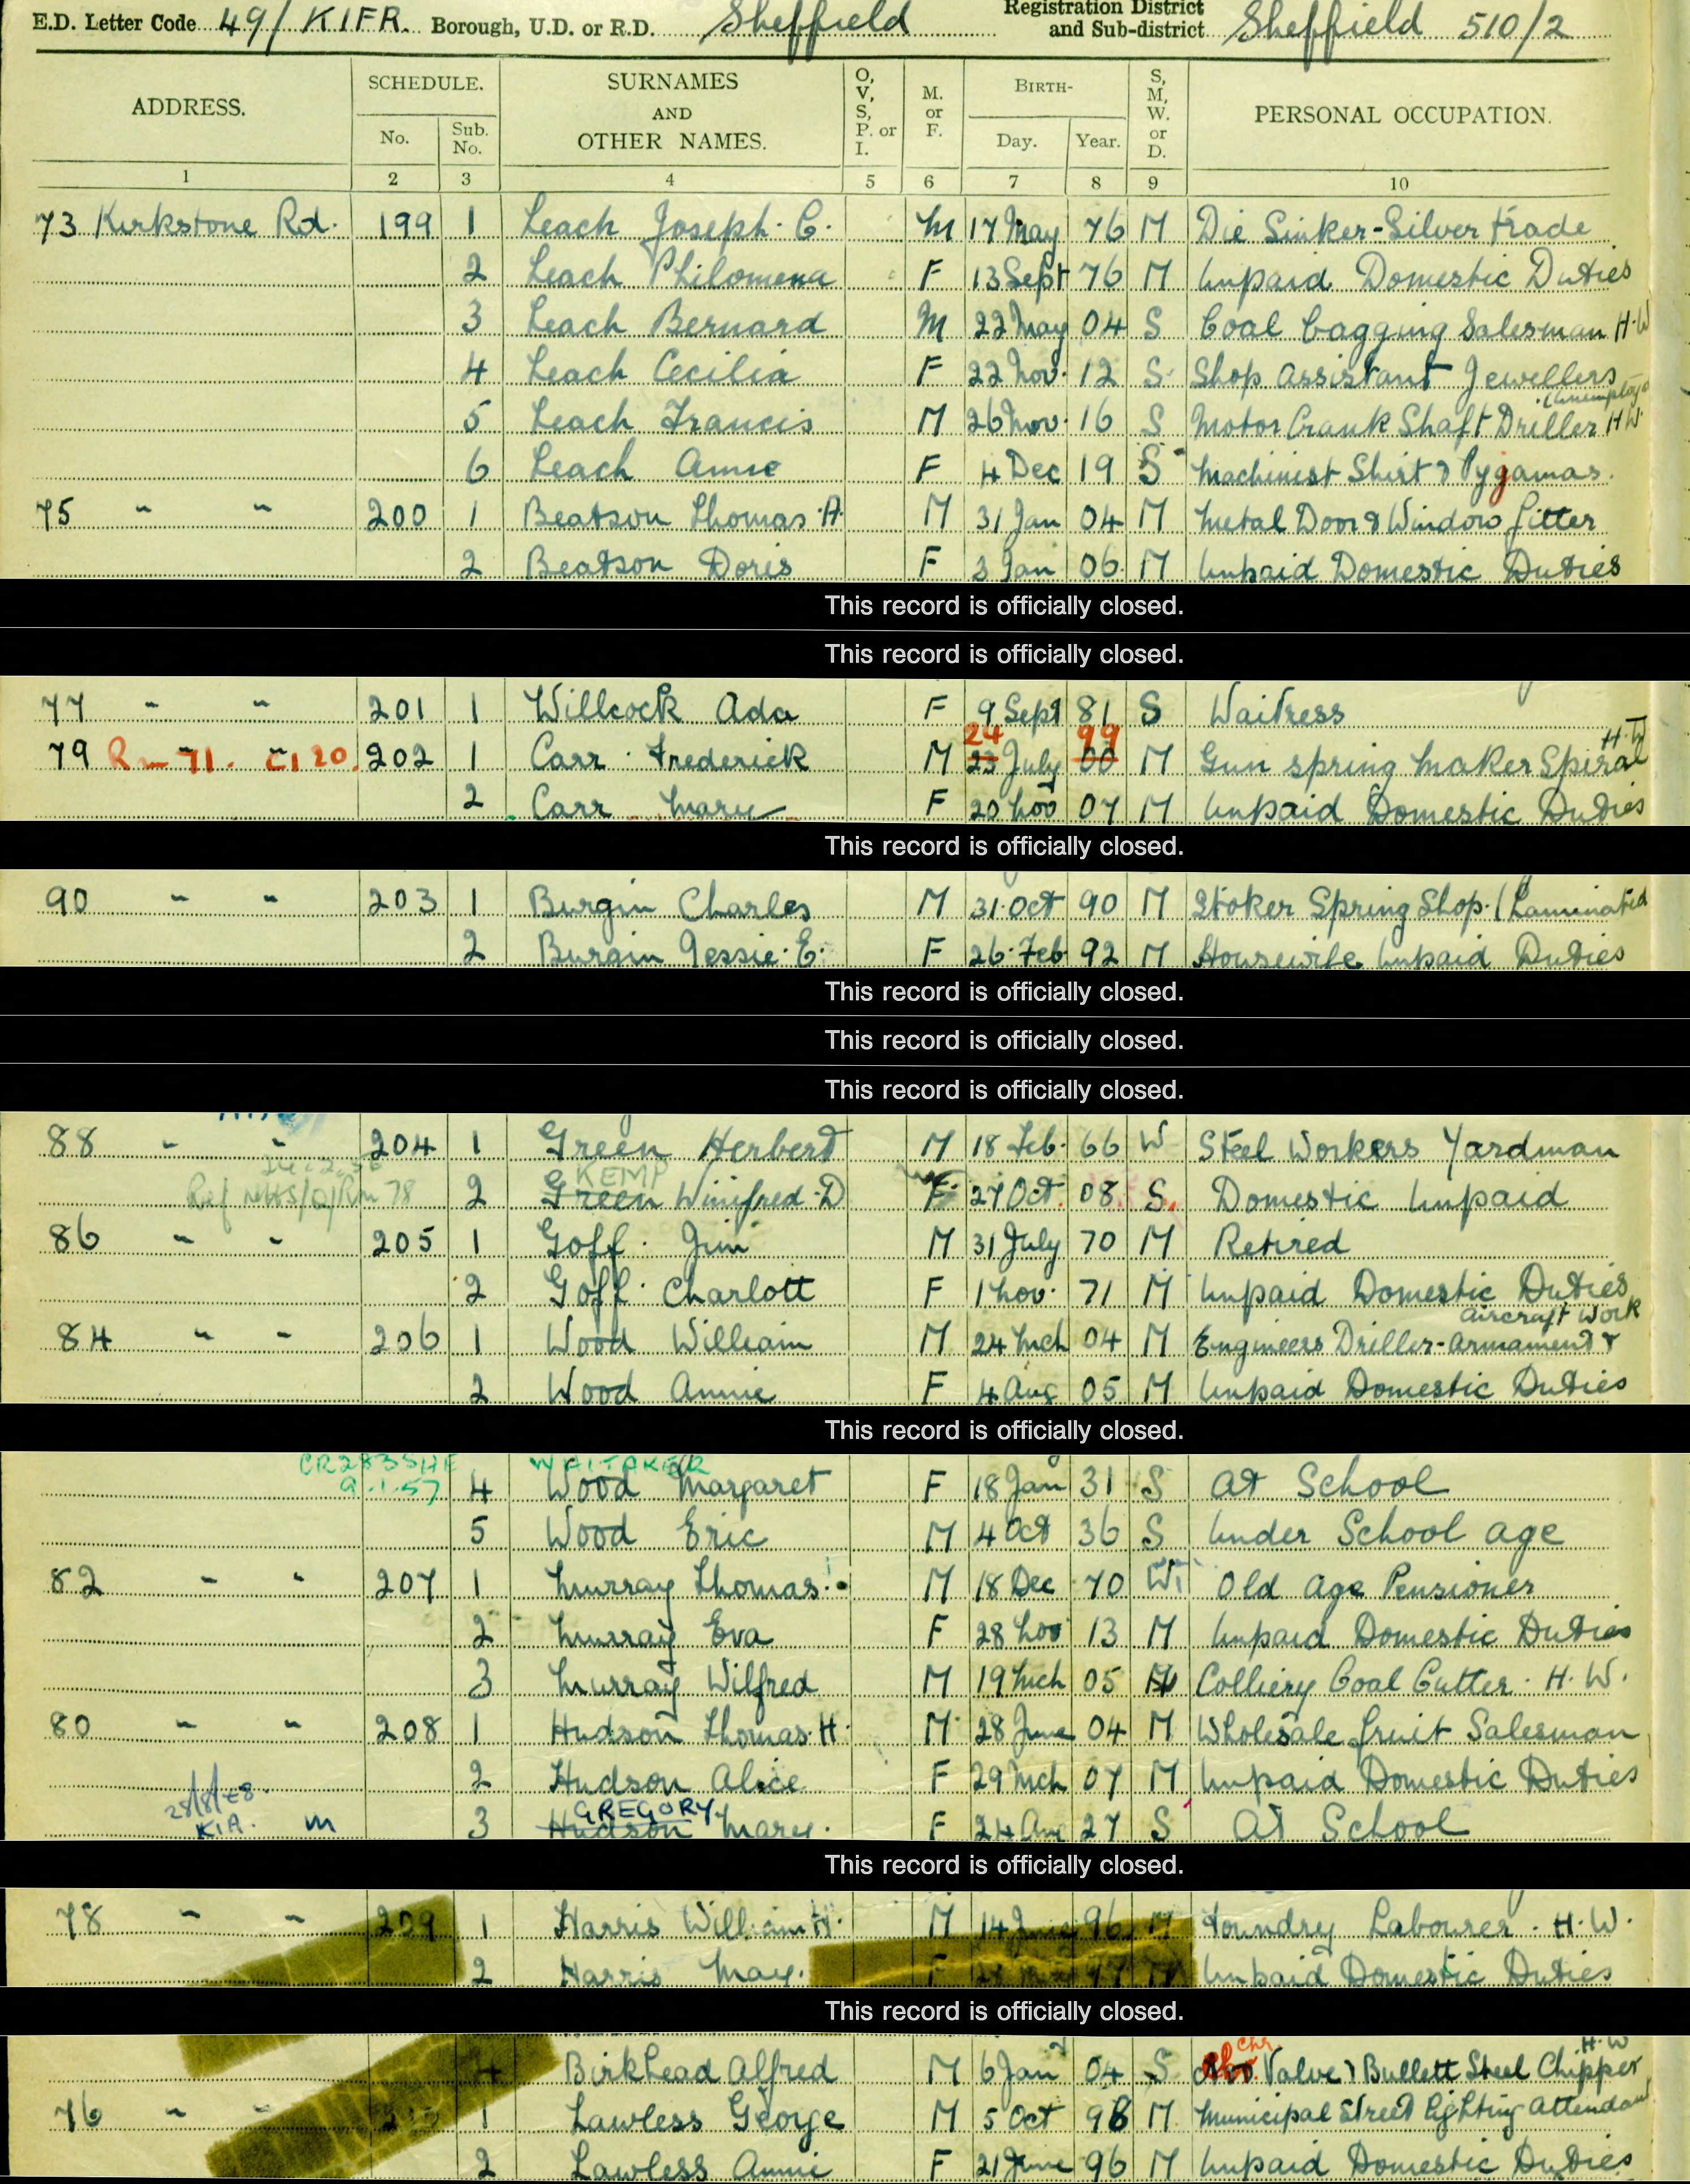 E.D. Letter Code 49/ KIFR. Borough, U.D. or R.D. Sheffield Registration District and Sub-district Sheffield 510/2
ADDRESS. SCHEDULE. No. Sub. No. SURNAMES AND OTHER NAMES. O, V, S, P. or I. M. or F. BIRTH- Day. Year. S, M, W. or D. PERSONAL OCCUPATION.
1 2 3 4 5 6 7 8 9 10
73 Kirkstone Rd. 199 1 Leach Joseph. C. M 17 May 76 M Die Sinker-Silver trade
2 Leach Philomena F 13 Sept 76 M Unpaid Domestic Duties
3 Leach Bernard M 22 May 04 S Coal Bagging Salesman H.W
4 Leach Cecilia F 22 Nov. 12 S Shop Assistant Jewellers
5 Leach Francis M 26 Nov. 16 S Motor Crank Shaft Driller H W
6 Leach Annie F 4 Dec 19 S Machinist Shirt & Pygamas.
75 " " 200 1 Beatson Thomas. H. M 31 Jan 04 M Metal Door & Window fitter
2 Beatson Doris F 3 Jan 06 M Unpaid Domestic Duties
This record is officially closed.
This record is officially closed.
77 " " 201 1 Willcock Ada F 9 Sept 81 S Waitress
24 99 H.W
79 Rm 71. C120. 202 1 Carr. Frederick M 23 July 00 M Gun spring Maker Spiral
2 Carr Mary F 20 Nov 07 M Unpaid Domestic Duties
This record is officially closed.
90 " " 203 1 Burgin Charles M 31 Oct 90 M Stoker Spring Shop. (Laminated
2 Burgin Jessie. E. F 26 Feb 92 M Housewife Unpaid Duties
This record is officially closed.
This record is officially closed.
This record is officially closed.
88 " " 204 1 Green Herbert M 18 Feb. 66 W Steel Workers Yardman
KEMP
Ref NHS/Q/Rm 78 2 Green Winifred. D F 27 Oct. 08 S. Domestic Unpaid
86 " " 205 1 Goff. Jim M 31 July 70 M Retired
2 Goff. Charlott F 1 Nov. 71 M Unpaid Domestic Duties
Aircraft Work
84 " " 206 1 Wood William M 24 Mch 04 M Engineers Driller-Armament &
2 Wood Annie F 4 Aug 05 M Unpaid Domestic Duties
This record is officially closed.
CR283SHE WAITAKER
9.1.57 4 Wood Margaret F 18 Jan 31 S At School
5 Wood Eric M 4 Oct 36 S Under School age
82 " " 207 1 Murray Thomas. M 18 Dec 70 W Old Age Pensioner
2 Murray Eva F 28 Nov 13 M Unpaid Domestic Duties
3 Murray Wilfred M 19 Mch 05 M Colliery Coal Cutter. H.W.
80 " " 208 1 Hudson Thomas. H. M 28 June 04 M Wholesale fruit Salesman
2 Hudson Alice F 29 Mch 07 M Unpaid Domestic Duties
28/8/48. GREGORY
KIA. M 3 Hudson Mary. F 24 Aug 27 S At School
This record is officially closed.
78 " " 209 1 Harris William H. M 14 96 M Foundry Labourer. H.W.
2 Harris May. F 97 M Unpaid Domestic Duties
This record is officially closed.
Chr H.W
4 Birkhead Alfred M 6 Jan 04 S Valve & Bullett Steel Chipper
76 " " 1 Lawless George M 5 Oct 96 M Municipal Street Lighting Attendant
2 Lawless Annie F 21 June 96 M Unpaid Domestic Duties